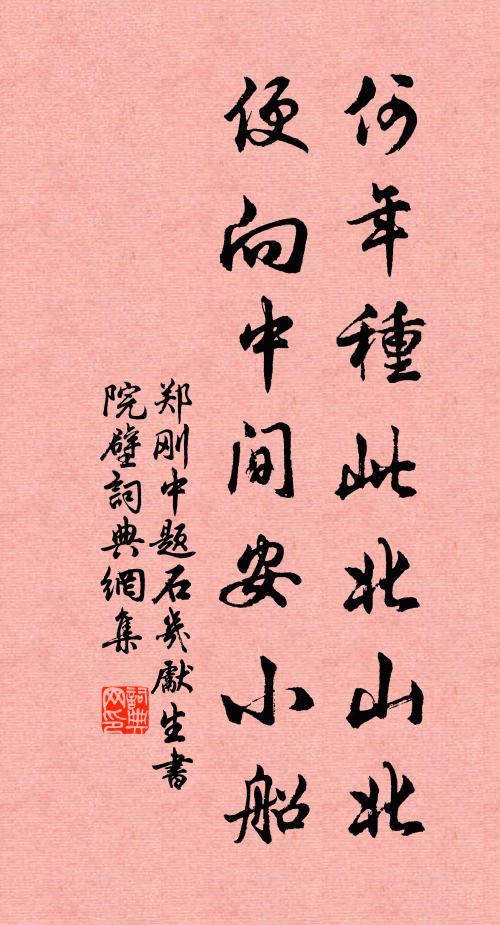 何年種此北山北
便向中间安小船
郑刚中题石岁獻生書
院壁詞典網集
詞典
网印